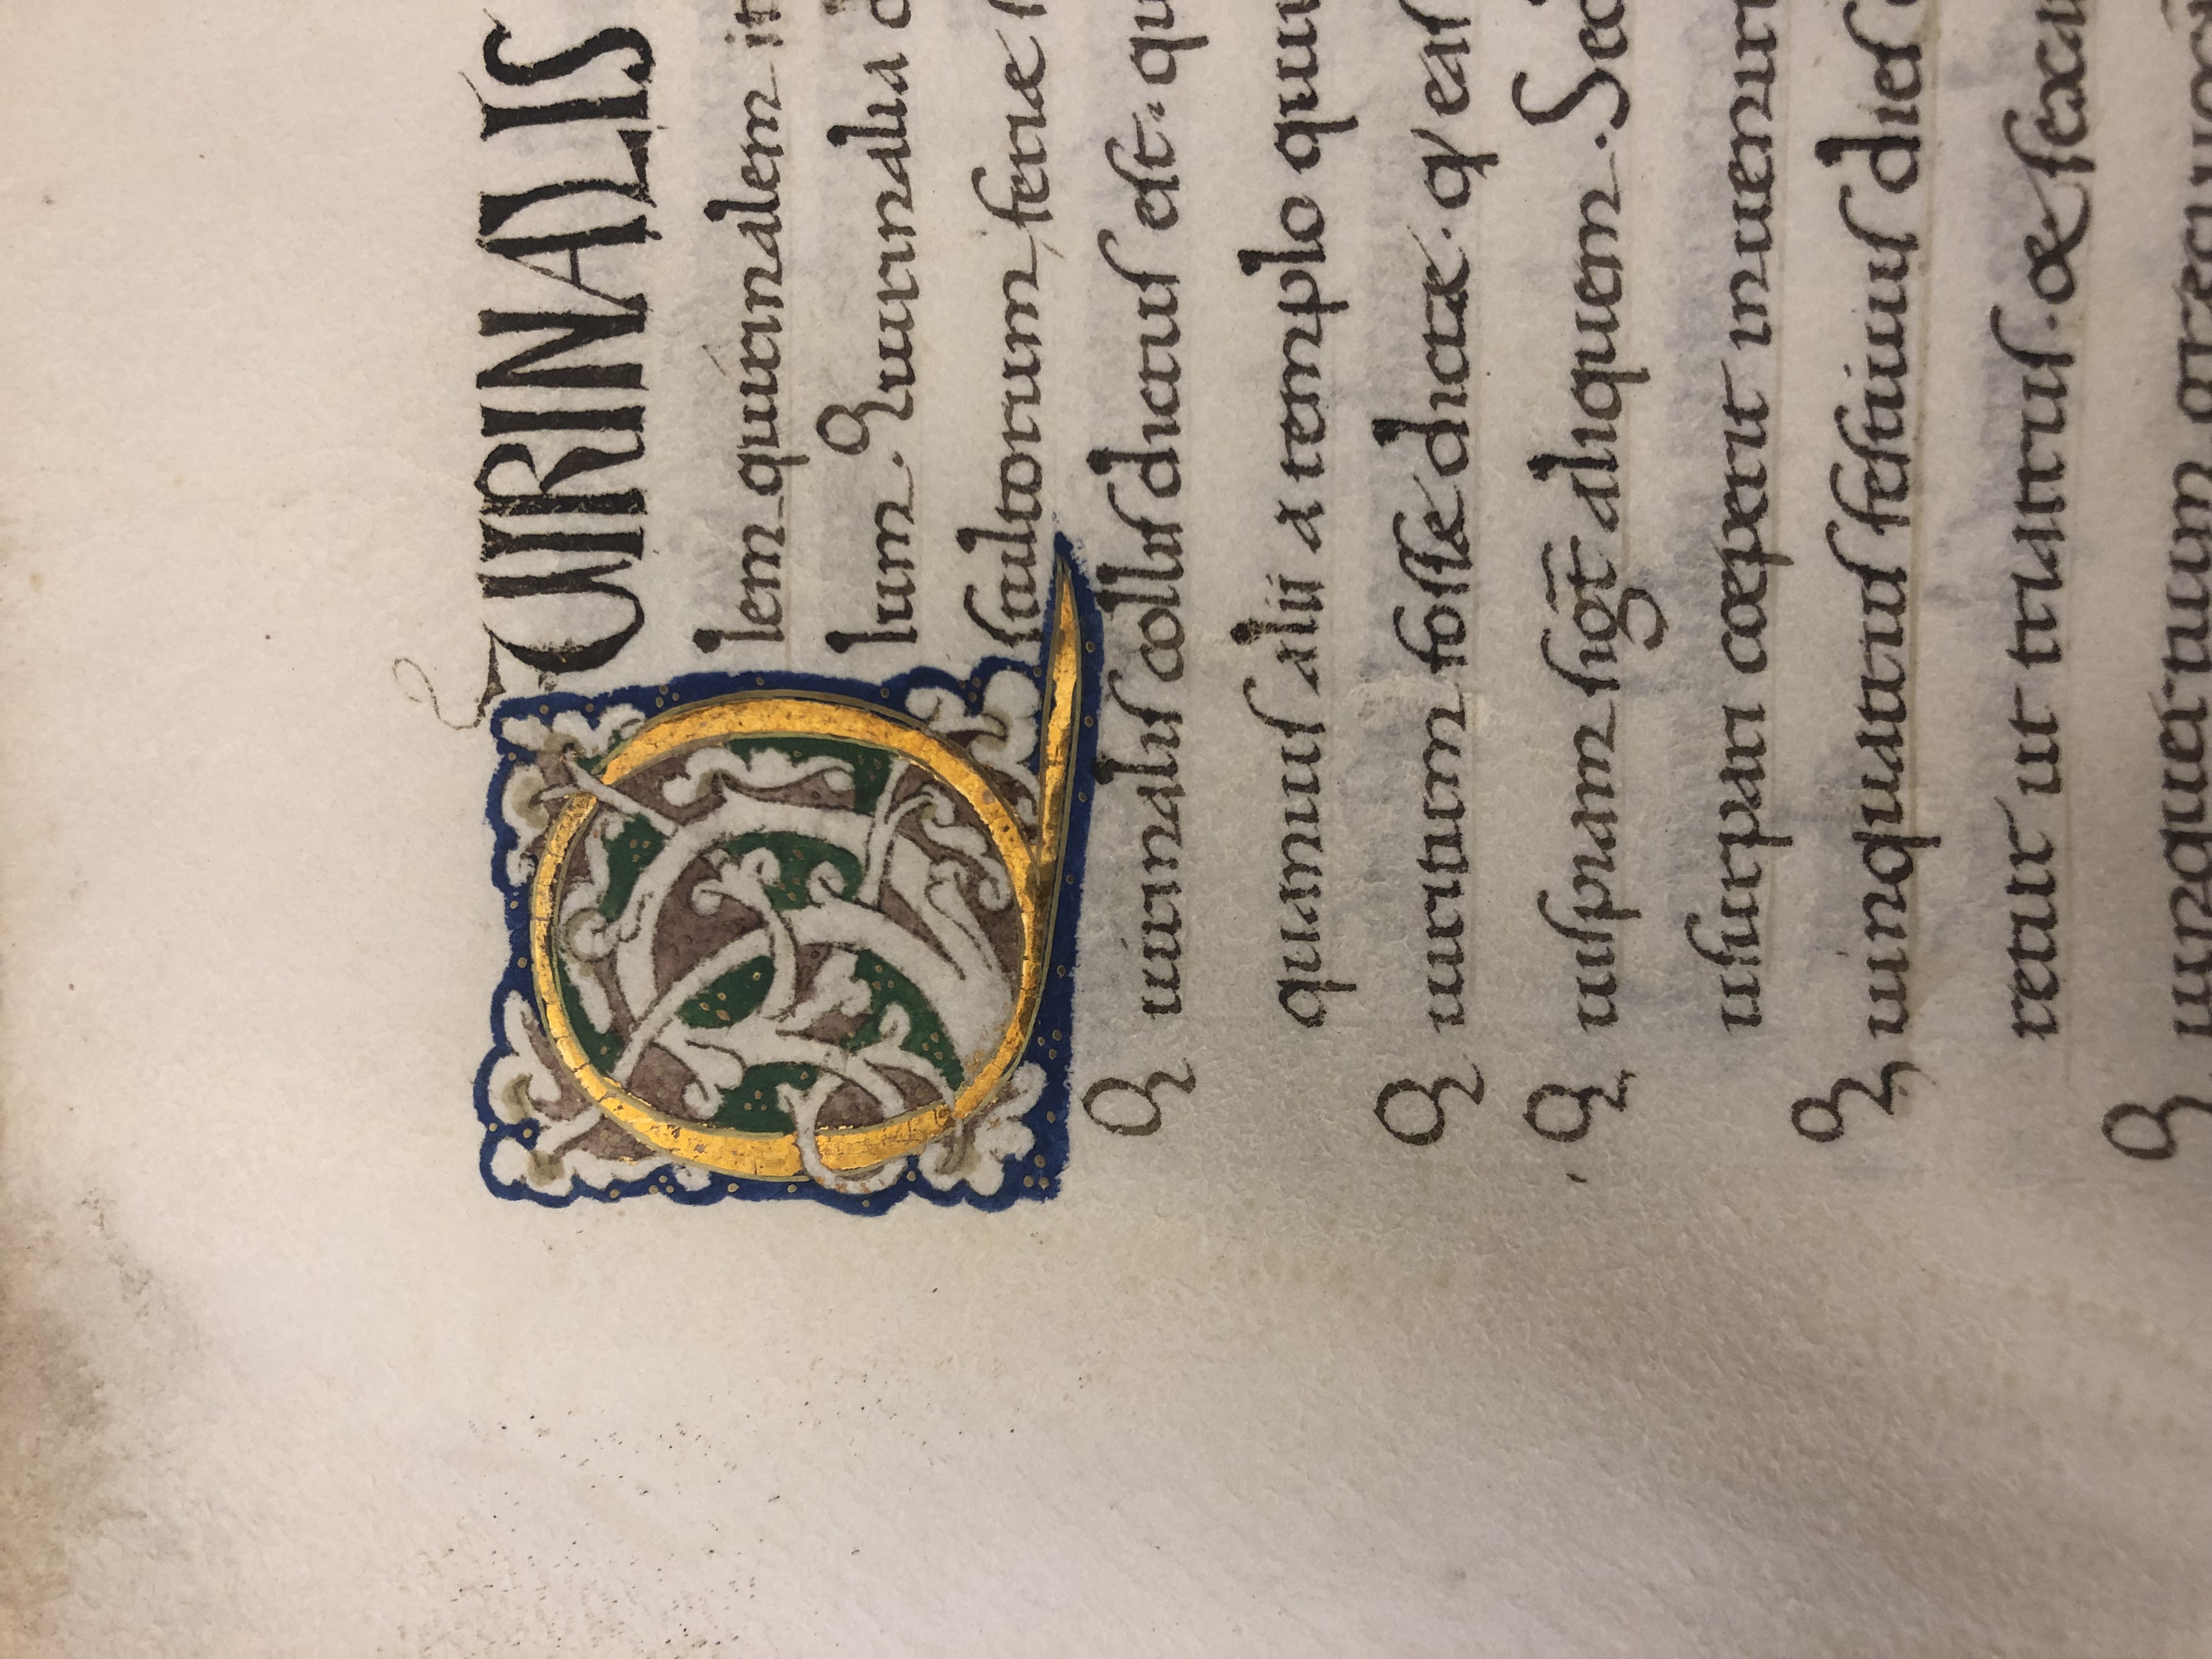 QUIRINALIS
lem quirinalem
lum. Quirinalia
stultorum feriæ
Quirinalis collis dictus est. qu
quamuis alii a templo quiri
Quiritium fossæ dictæ. q' eas
Quispiam sigt̄ aliquem. Sed
usurpari cœperit inueniri
Quinquatrus festiuus dies
retur ut triatrus. & sexat
Quinquertium græci uocan